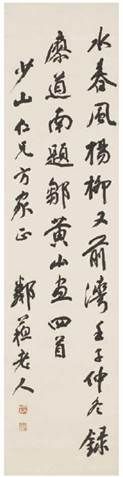 水春風楊柳又前灣壬子仲冬錄
廖道南題鄒黃山畫四首
少山仁兄方家正 鄰蘇老人